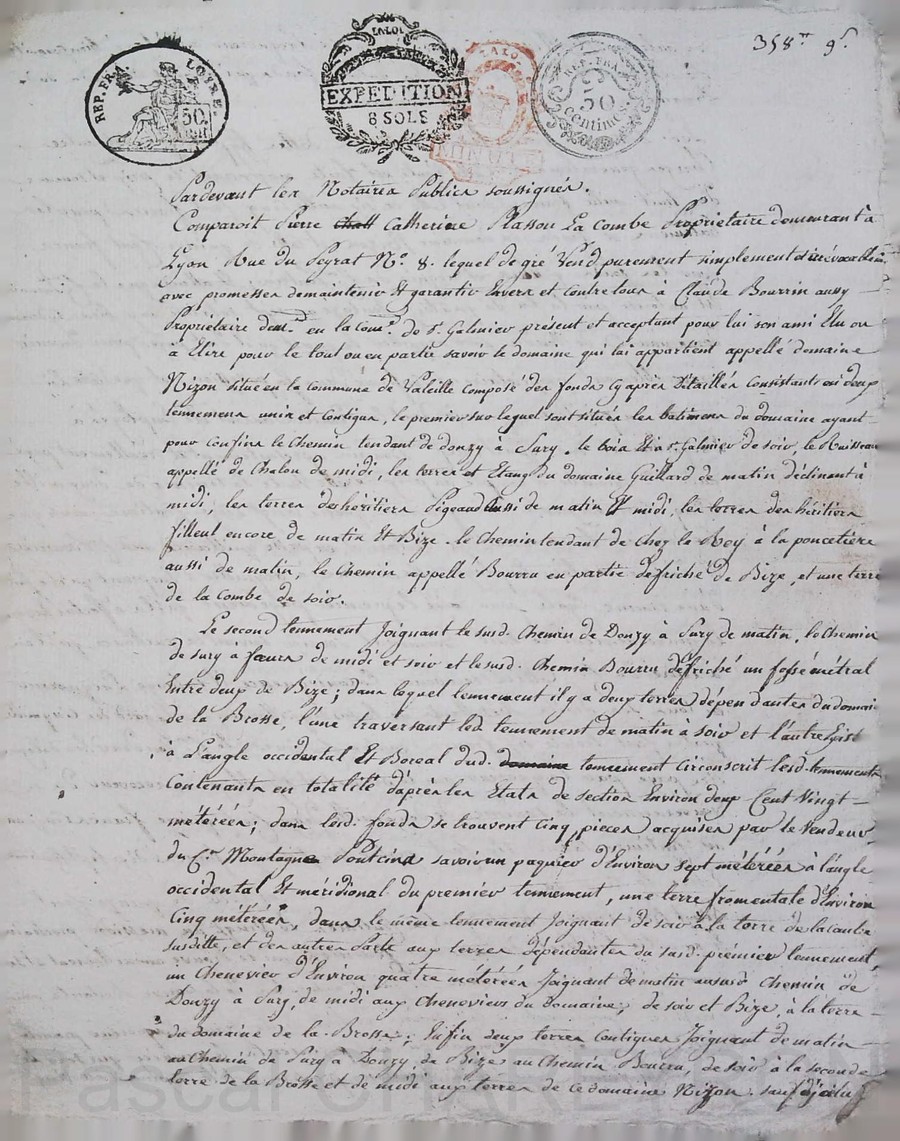 358.m 9.s
REP. FRA. LOIRE.
50
LA LOI
EXPEDITION
8 SOLS
LA LO
MINUTE
REP. FRA.
50
centimes
Pardevant les Notaires Publics soussignés.
Comparoit Pierre Catherine Plasson La Combe Propriétaire demeurant à
Lyon Rue du Peyrat No. 8. lequel de gré Vend purement simplement et irrévocablement
avec promesses de maintenir Et garantir Envers et contre tous à Claude Bourrin aussy
Propriétaire dem.t en la com.e de s.t Galmier présent et acceptant pour lui son ami Elu ou
à Elire pour le tout ou en partie savoir le domaine qui lui appartient appellé domaine
Nizon situé en la commune de Valeille composé des fonds cy après Détaillés Consistants en deux
tennemens unis et Contigus, le premier sur lequel sont situés les bâtimens du domaine ayant
pour confins le Chemin tendant de donzy à Sury, le bois Et à s.t Galmier de soir, le Ruisseau
appellé de Chalon de midi, les terres et Etang du domaine Guillard de matin déclinant à
midi, les terres des héritiers Pigeaud aussi de matin Et midi, les terres des héritiers
filleul encore de matin Et Bize. le Chemin tendant de Chez le Roy à la poncetière
aussi de matin, le Chemin appellé Bourru en partie défriché de Bize, et une terre
de la Combe de soir.
Le second tennement Joignant le susd. Chemin de Donzy à Sury de matin, le Chemin
de sury à feurs de midi et soir et le susd. Chemin Bourru défriché un fossé métral
Entre deux de Bize; dans lequel tennement il y a deux terres dépendantes du domaine
de la Brosse, l'une traversant led. tennement de matin à soir et l'autre
à L'angle occidental Et Boréal dud. domaine tennement Circonscrit lesd. tennements
Contenants en totalité d'après les Etats de section Environ deux Cent Vingt
métérées; dans lesd. fonds se trouvent Cinq pièces acquises par le Vendeur
du C.en Montagne Pontcins savoir un paquier d'Environ sept métérées à l'angle
occidental Et méridional du premier tennement, une terre fromentale d'Environ
Cinq métérées, dans le même tennement Joignant de soir à la terre de la Combe
susditte, et des autres Parts aux terres dépendantes du susd. premier tennement,
un Chenevier d'Environ quatre métérées Joignant de matin au susd Chemin de
Donzy à Sury, de midi aux Cheneviers du Domaine, de soir et Bize, à la terre
du domaine de la Brosse; Enfin deux terres contigues Joignant de matin
au Chemin de Sury à Donzy, de Bize au Chemin Bourru, de soir à la seconde
terre de la Brosse et de midi aux terres de ce domaine Nizon. sauf